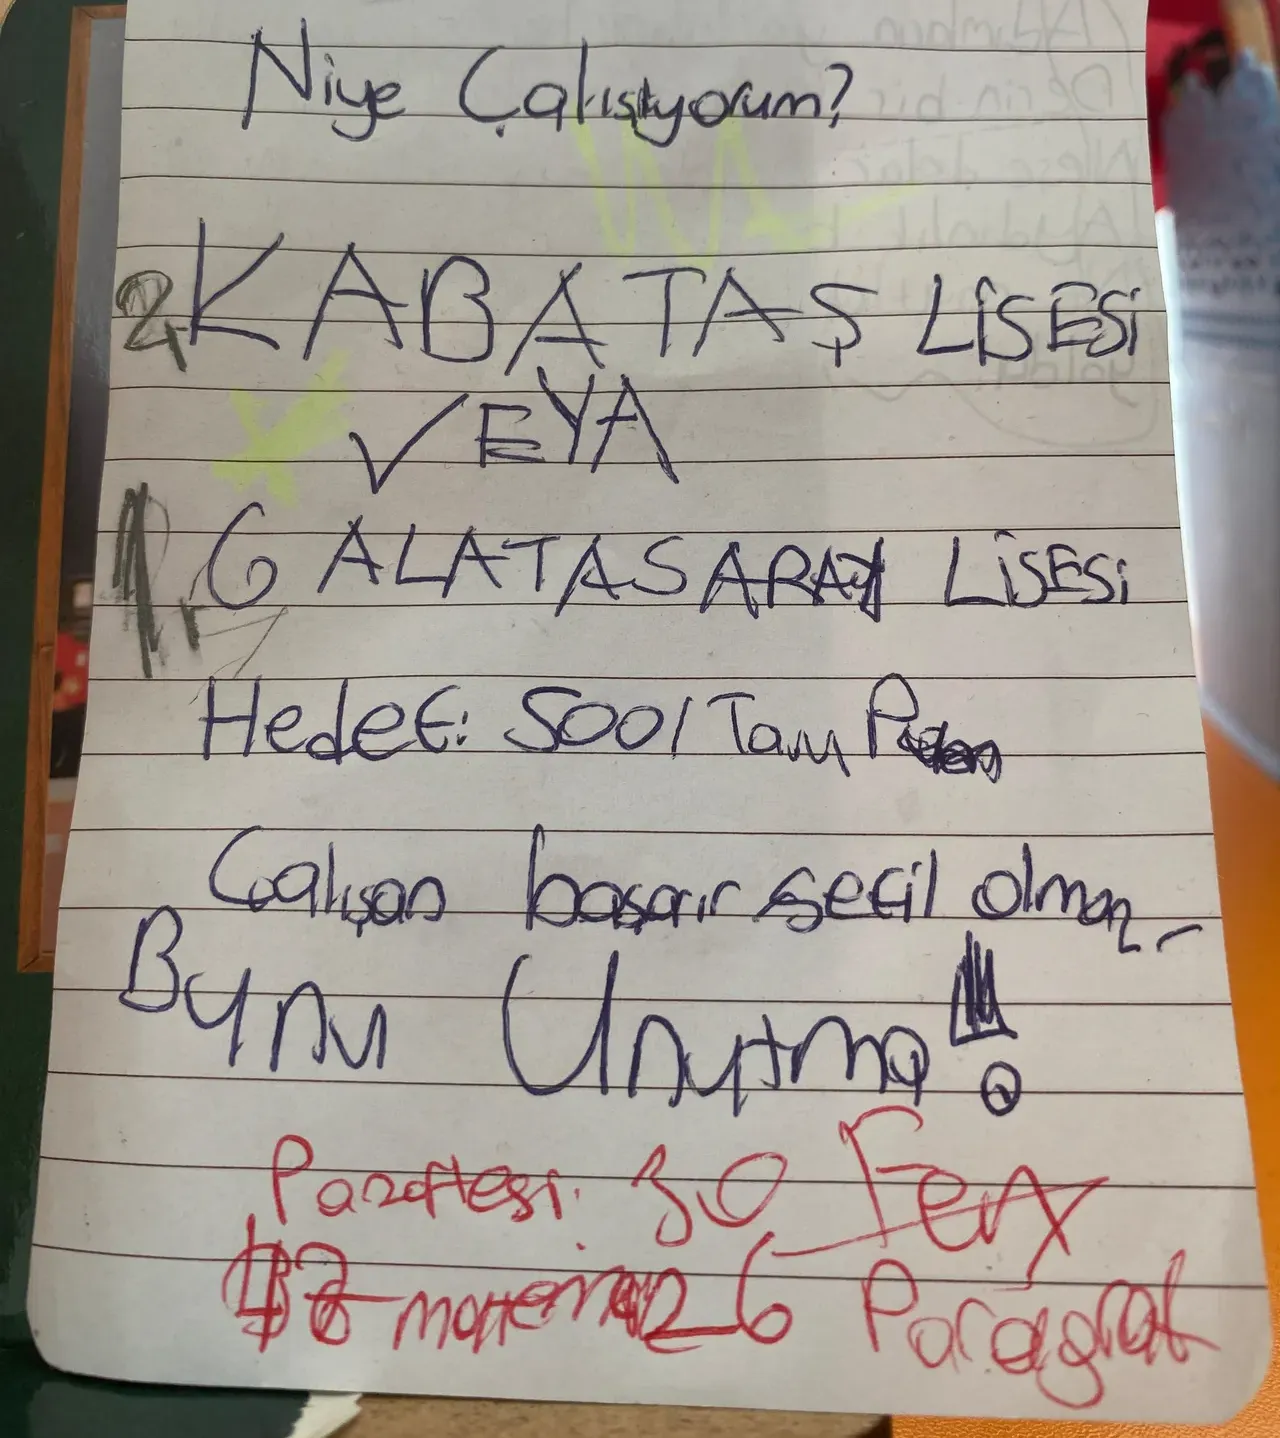 Niye Çalışıyorum?
2, KABATAŞ LİSESİ
VEYA
1, GALATASARAY LİSESİ
Hedef: 500/Tam P
Çalışan başarır sefil olmaz
Bunu Unutma!!!
Pazartesi: 30 Fen
matematik 26 Paragraf